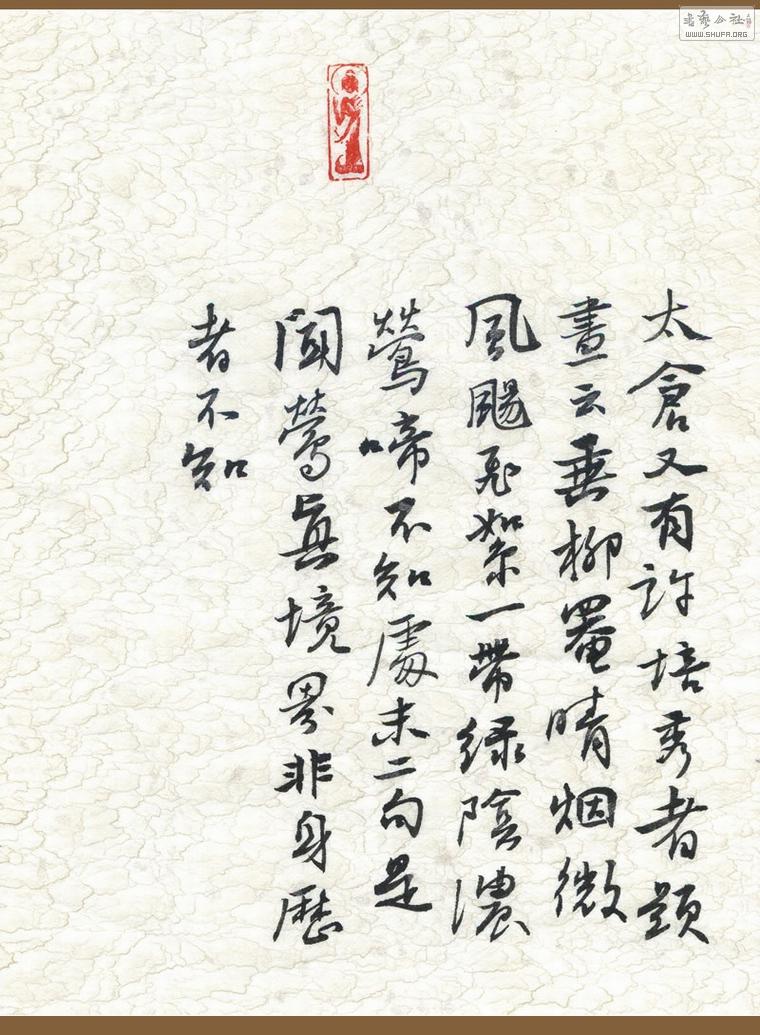 太倉又有許培秀者題
畫云垂柳罨晴烟微
風颺飛絮一帶綠陰濃
鶯啼不知處末二句是
聞鶯真境界非身歷
者不知
書藝公社
WWW.SHUFA.ORG